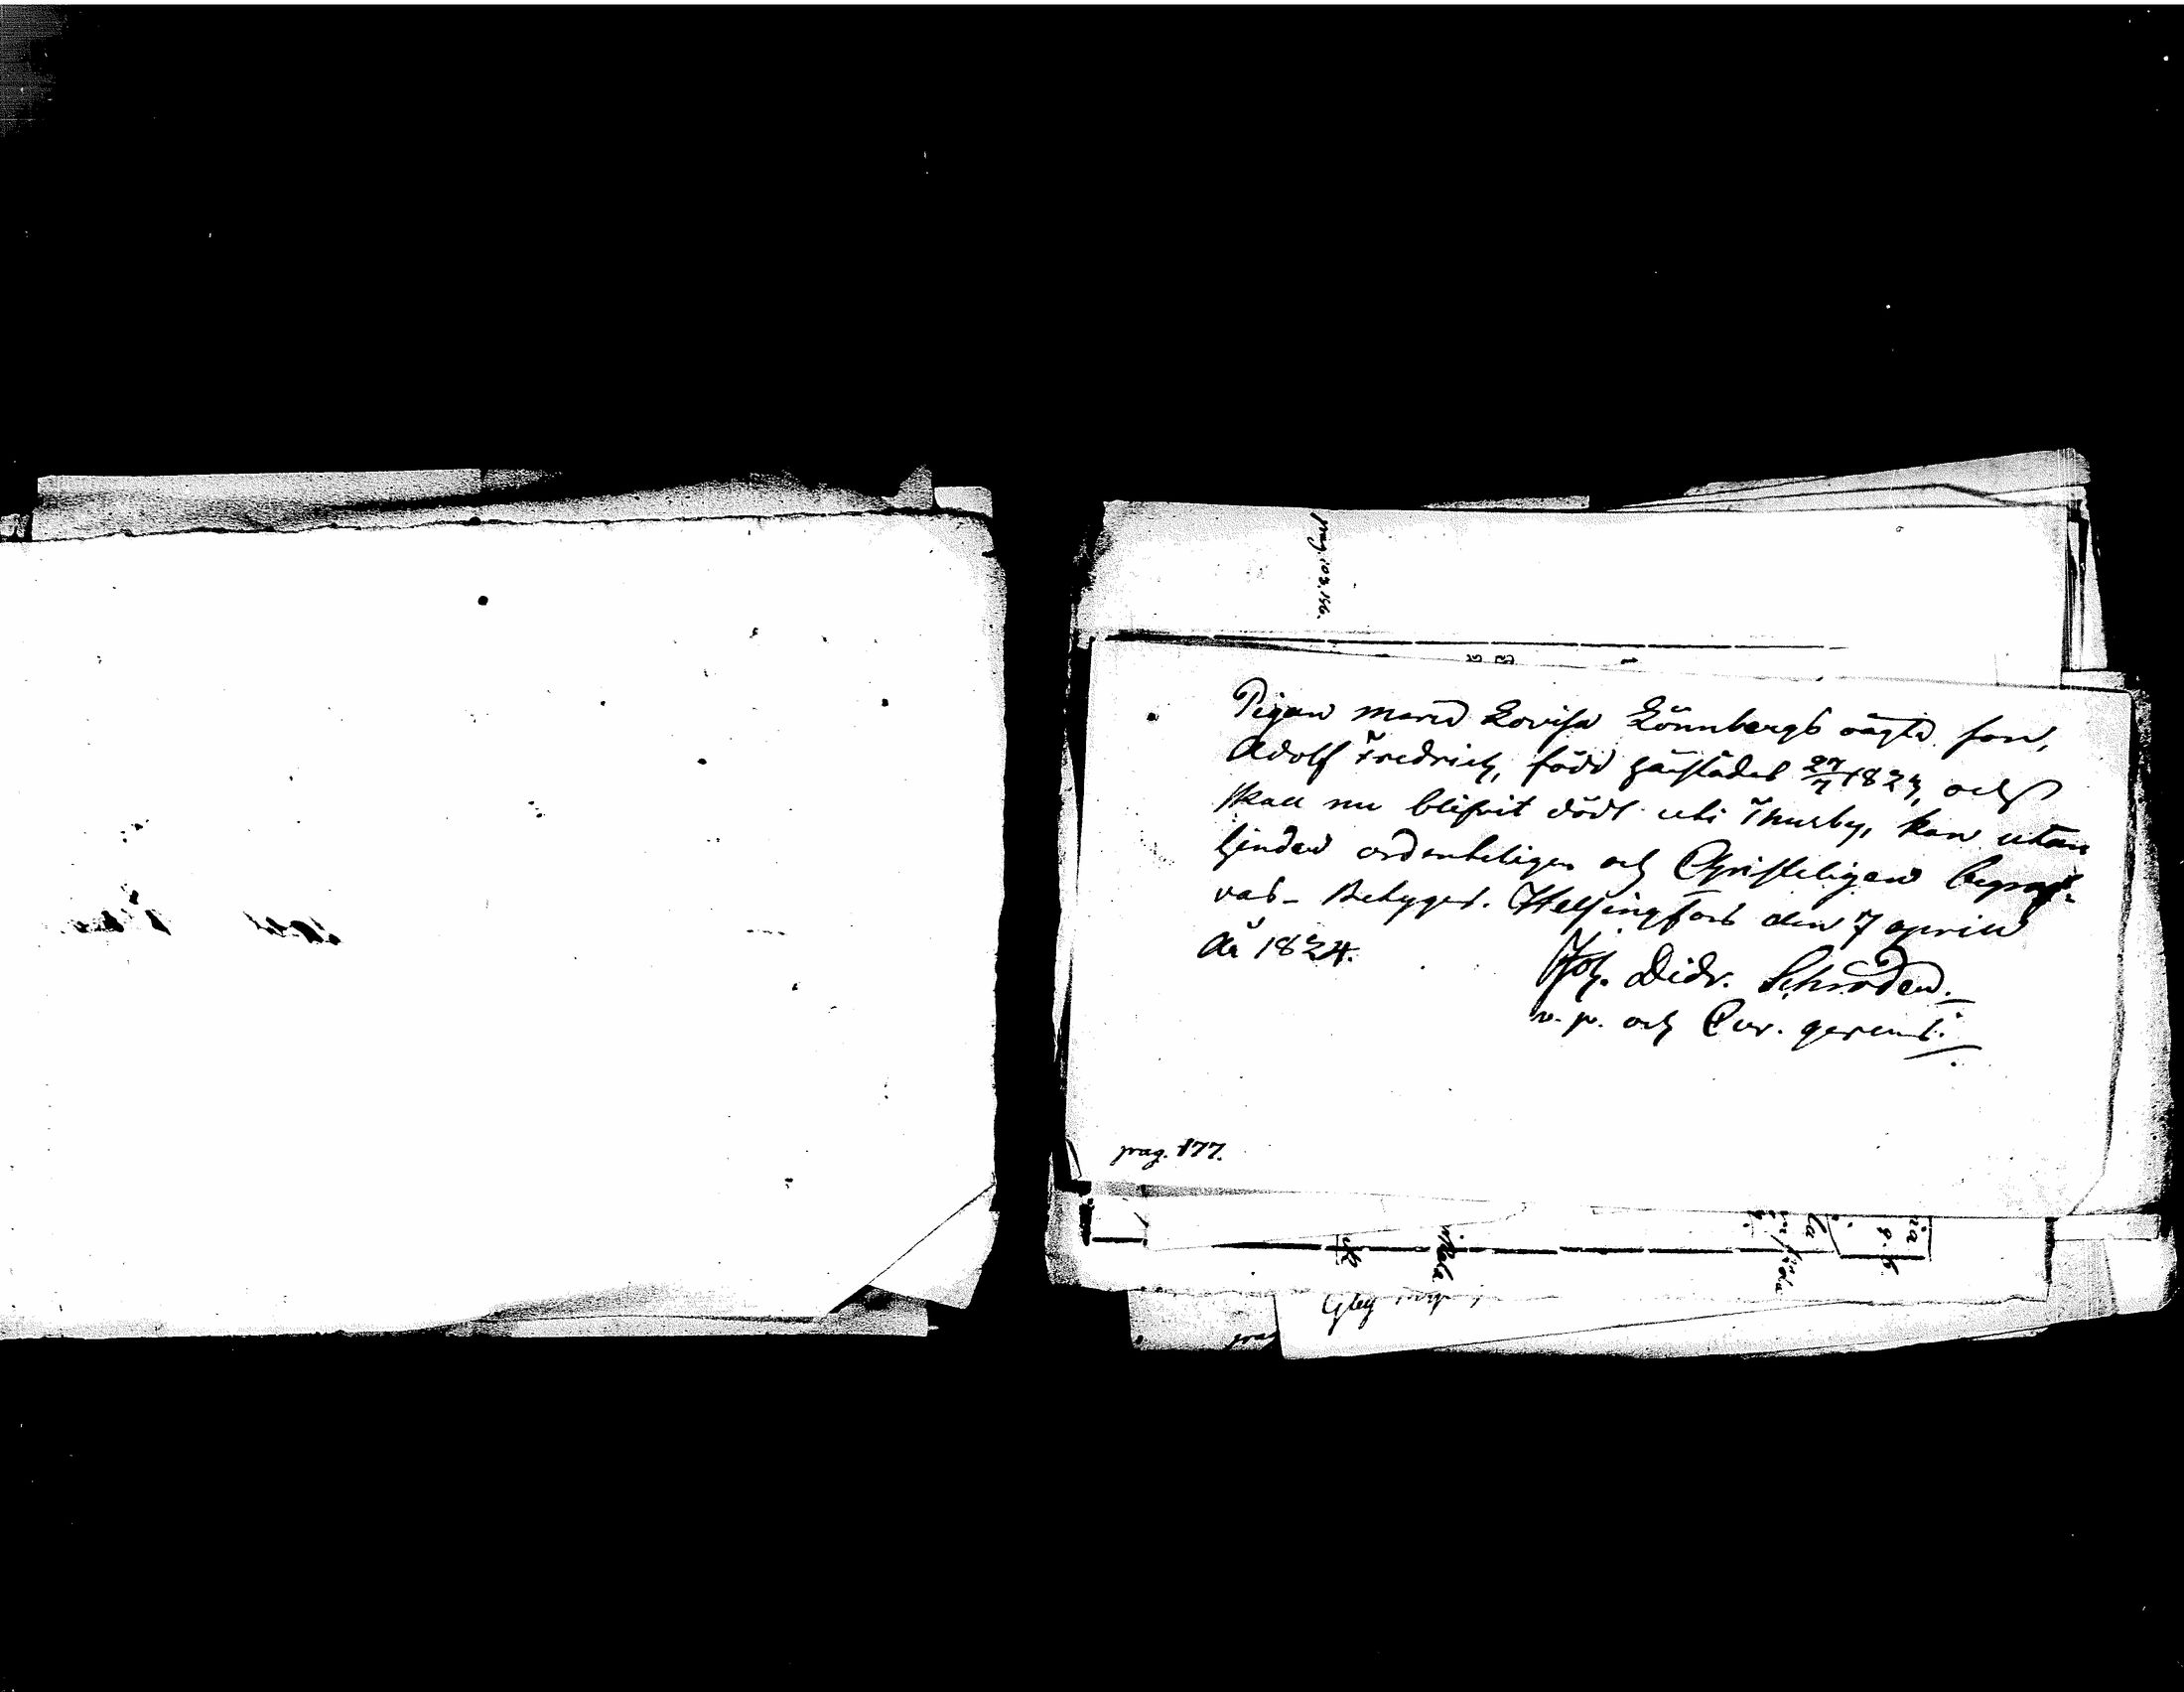 pag. 103. 156.
Pigan Maria Lovisa Lönnbergs oägta son,
Adolf Fredrich, född härstädes 27/7 1823, och
skall nu blifvit död uti Thurby, kan utan
hinder ordenteligen och Christeligen begraf-
vas – Betyges. Helsingfors den 7 April
år 1824.
Joh. Didr. Schröder.
v. p. och Cur. gerens.
pag. 177.